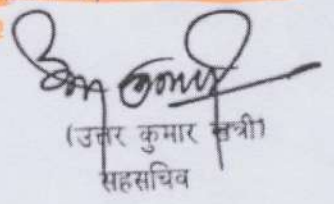 (उत्तर कुमार खत्री)
सहसचिव